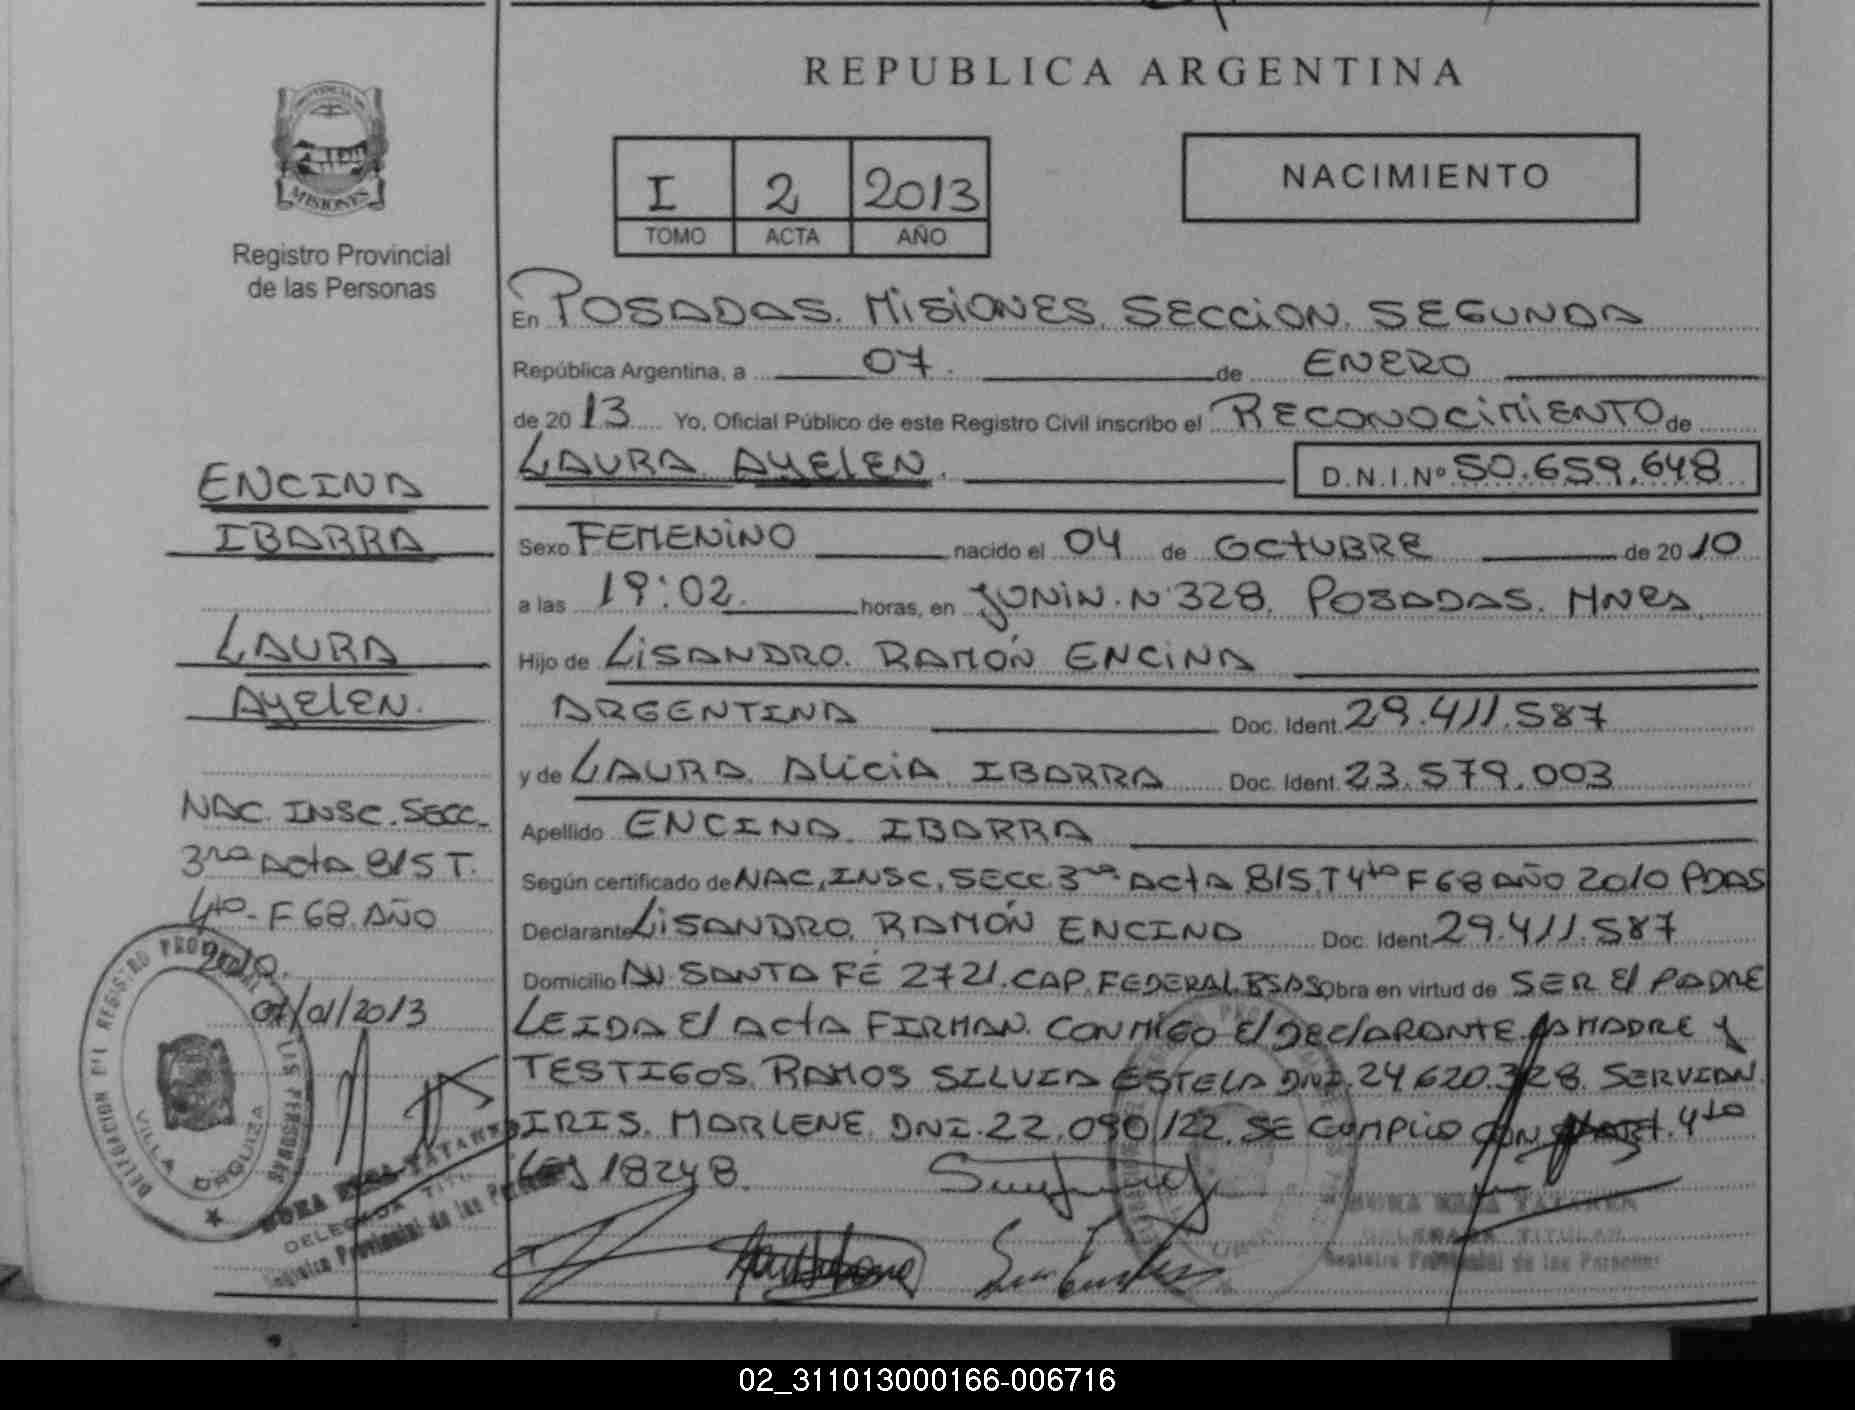 REPUBLICA ARGENTINA
PROVINCIA DE
MISIONES
Registro Provincial
de las Personas
I 2 2013
TOMO ACTA AÑO
NACIMIENTO
En POSADAS. MISIONES, SECCION, SEGUNDA
República Argentina, a 07. de ENERO
de 2013 Yo, Oficial Público de este Registro Civil inscribo el RECONOCIMIENTO de
LAURA AYELEN. D.N.I.Nº 50.659.648
Sexo FEMENINO nacido el 04 de OCTUBRE de 2010
a las 19:02. horas, en JUNIN. N 328, POSADAS. MNES
Hijo de LISANDRO. RAMÓN ENCINA
ARGENTINA Doc. Ident. 29.411.587
y de LAURA ALICIA IBARRA Doc. Ident. 23.579.003
Apellido ENCINA IBARRA
Según certificado de NAC, INSC, SECC 3ra ACTA 815, T 4to F 68 AÑO 2010 PDAS
Declarante LISANDRO RAMÓN ENCINA Doc. Ident. 29.411.587
Domicilio AV. SANTA FÉ 2721. CAP. FEDERAL. BSAS Obra en virtud de SER El PADRE
LEIDA El ACTA FIRMAN CONMIGO El DEClARANTE LA MADRE y
TESTIGOS RAMOS SILVIA ESTELA DNI.24.620.328. SERVIAN
IRIS. MARLENE DNI.22.090122. SE CUMPLIO CON ART. 4to
LEY 18248.
ENCINA
IBARRA
LAURA
AYELEN.
NAC. INSC. SECC.
3ra ACTA 815 T.
4to- F 68. AÑO
2010.
07/01/2013
DELEGACION DEL REGISTRO PROVINCIAL DE LAS PERSONAS
VILLA URQUIZA
DELEGADA TITULAR
Registro Provincial de las Personas
DELEGADA TITULAR
Registro Provincial de las Personas
02_311013000166-006716